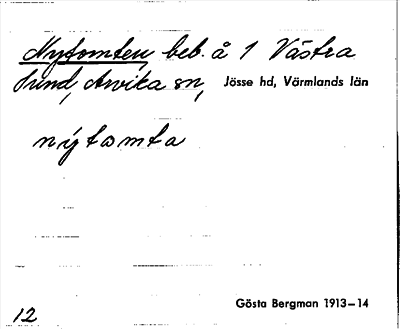 Nytomten, beb. å 1 Västra
Sund, Arvika sn, Jösse hd, Värmlands län
nýtomta
Gösta Bergman 1913-14
12